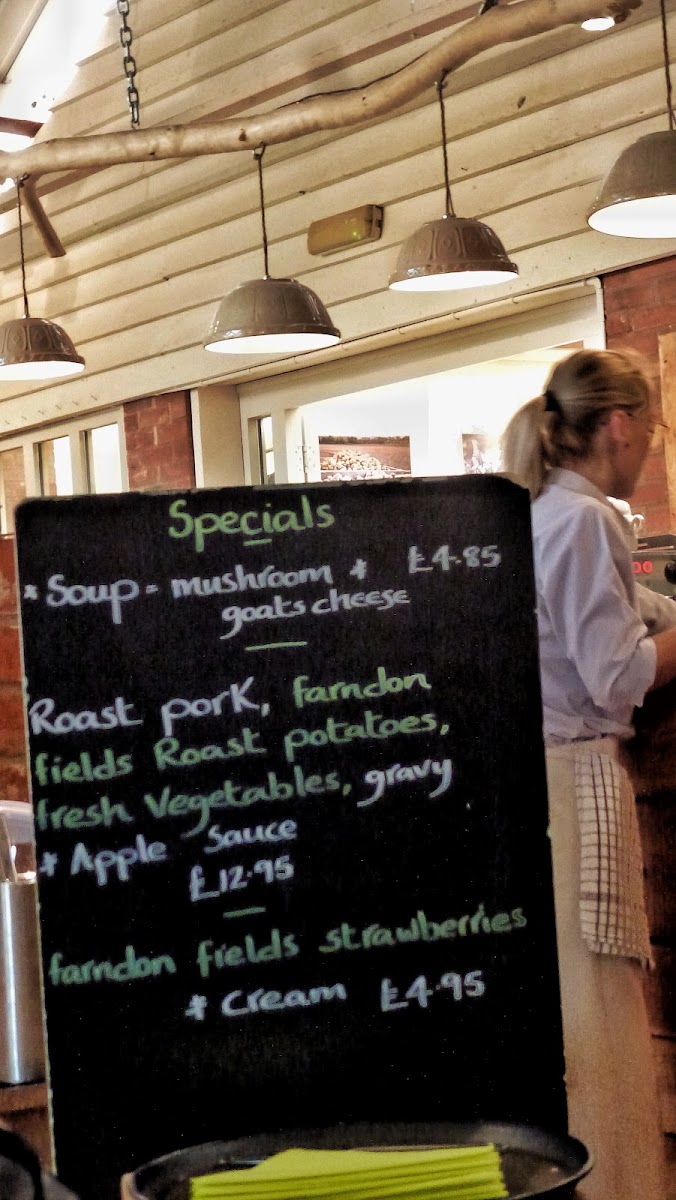 Specials
* Soup = mushroom + £4.85
goats cheese
Roast pork, farndon
fields Roast potatoes,
fresh vegetables, gravy
+ Apple Sauce
£12.95
farndon fields strawberries
+ cream £4.95